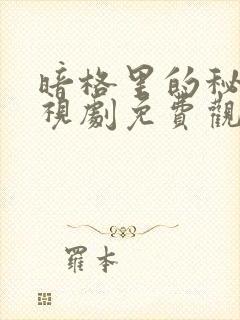 暗格里的秘
視劇免費觀
羅本